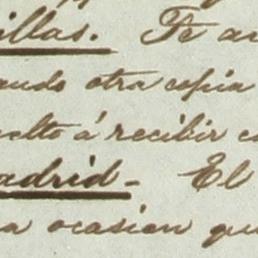 illas. Te au
ando otra copia
uelto á recibir c
adrid- El
a ocasion qu